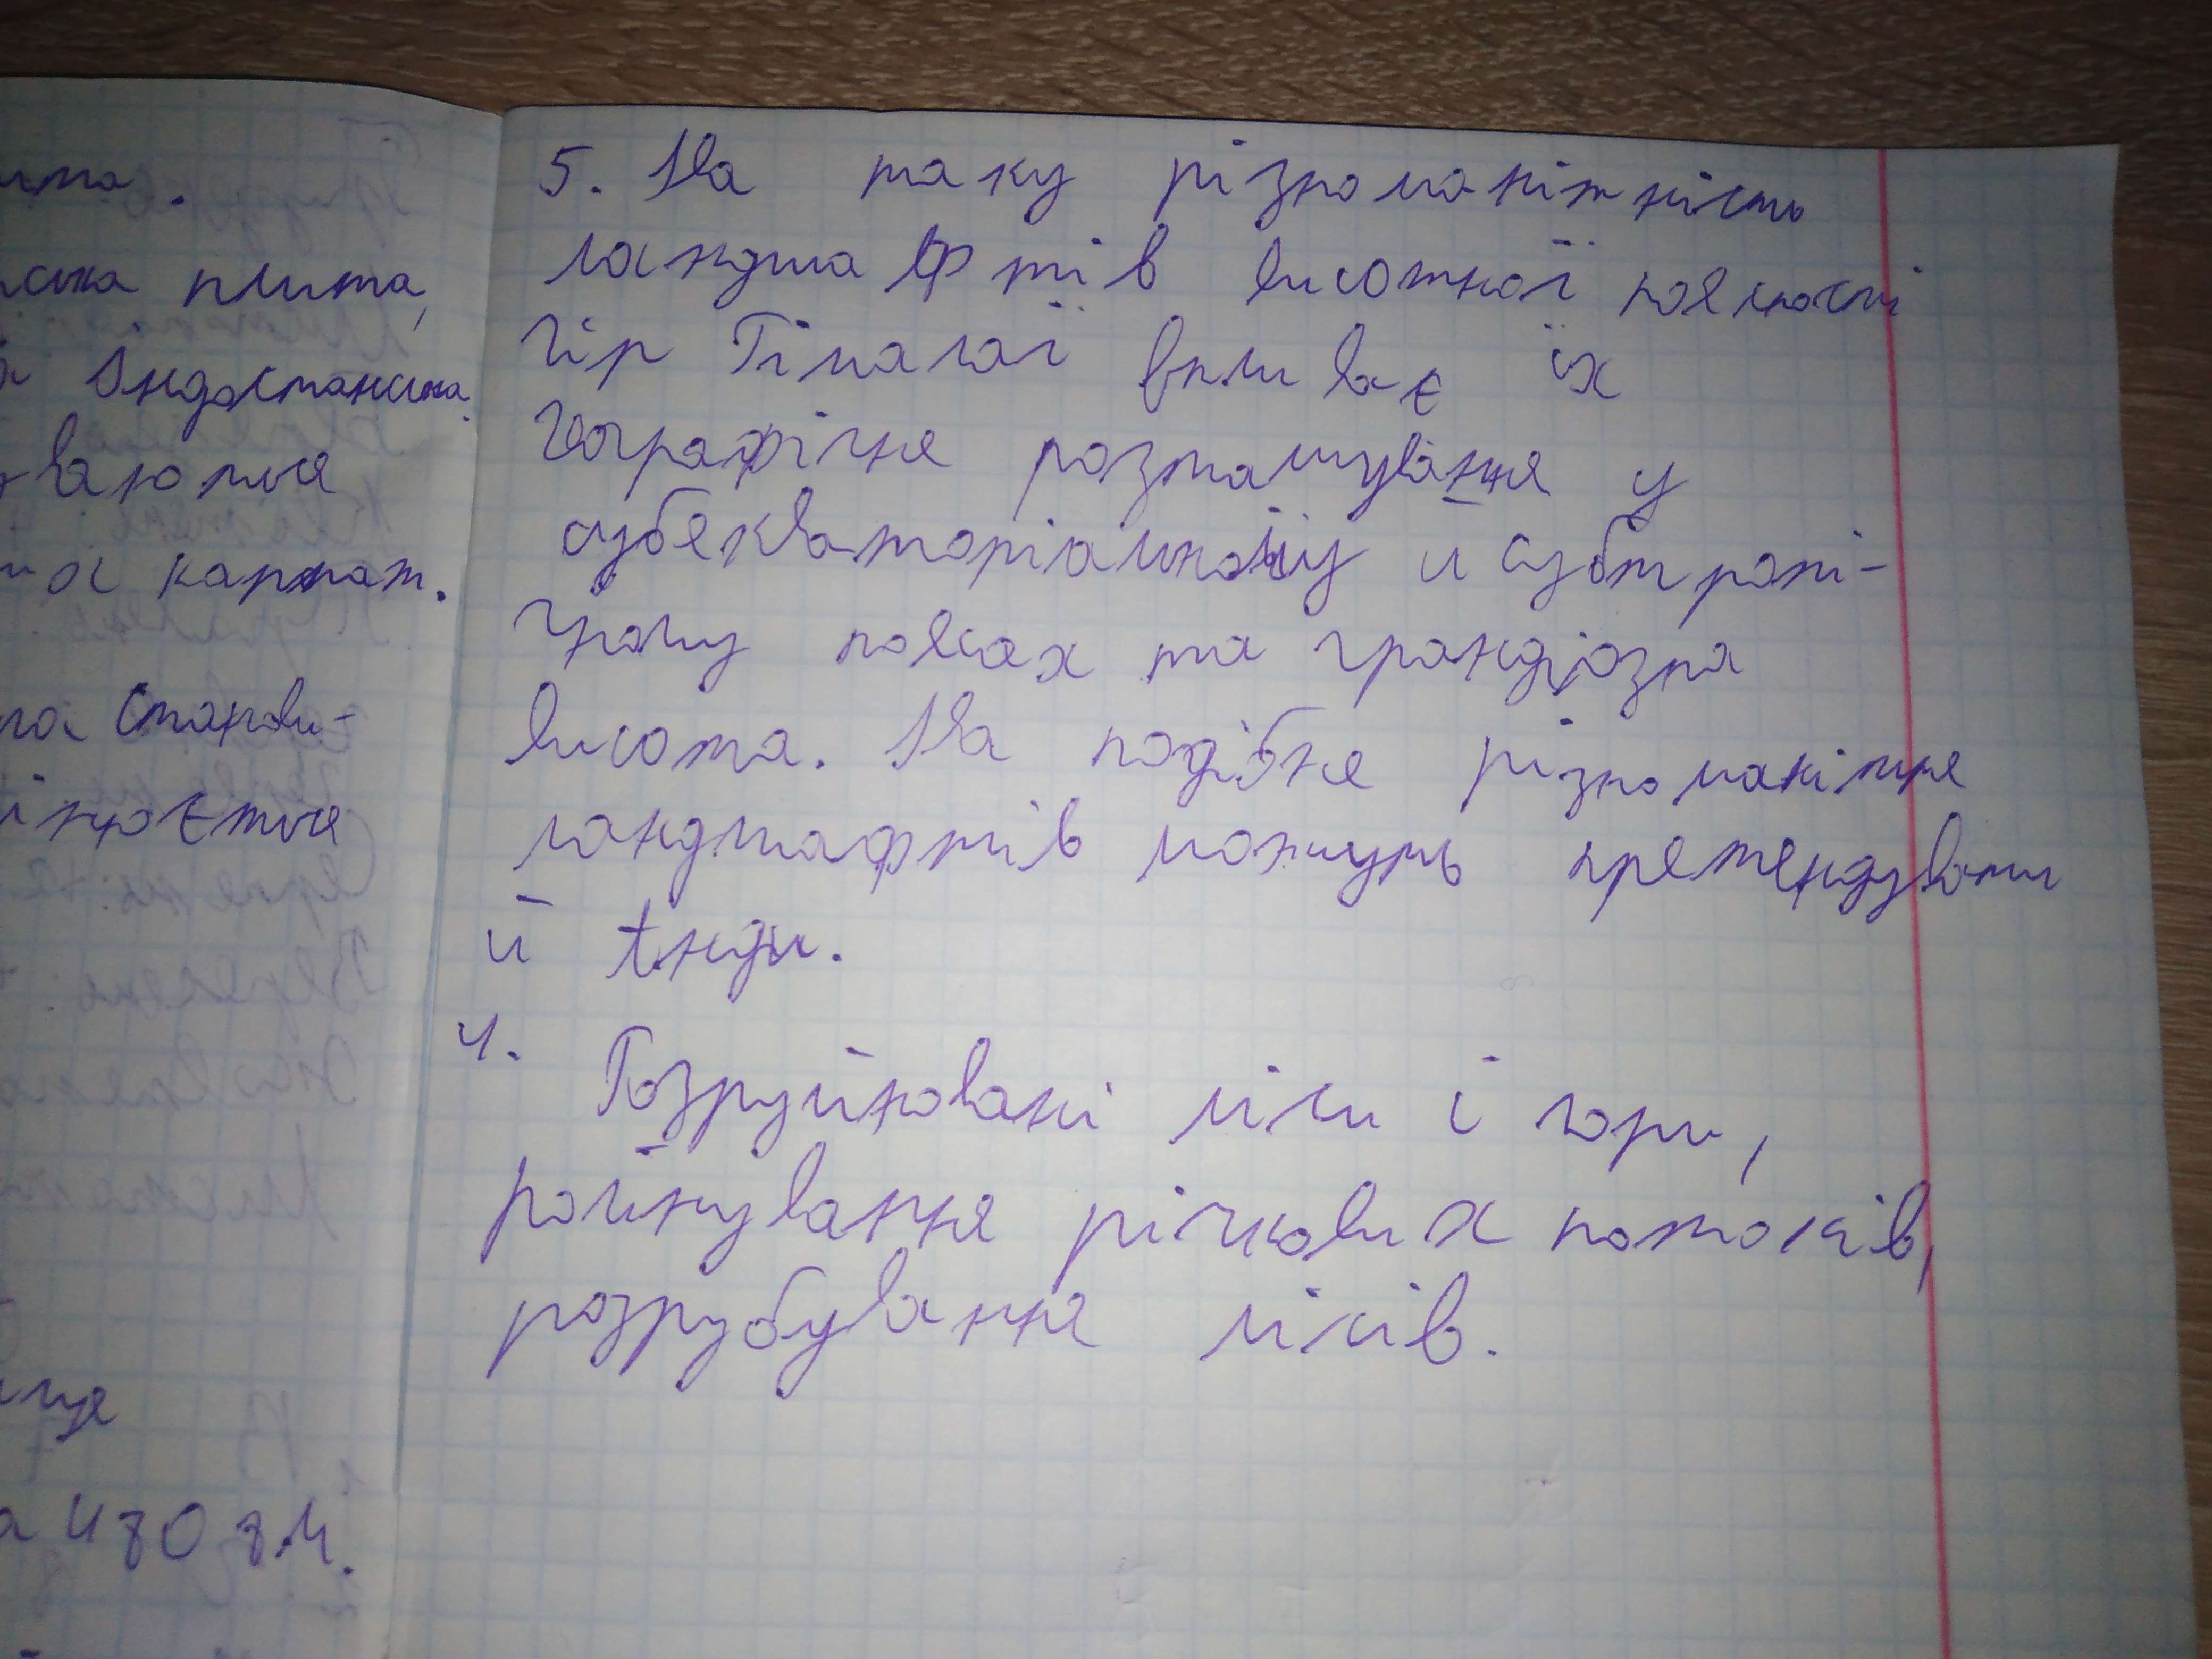 има.
ська плита,
Індостанська.
ваються
их карпат.
на станови-
інюється
ище
а 480 з.ч.
5. На таку різноманітність
ландшафтів висотної поясності
гір Гімалаї впливає їх
географічне розташування у
субекваторіальному й субтропі-
чному поясах та грандіозна
висота. На подібне різноманітне
ландшафтів можуть претендувати
й Анди.
4. Розруйновані ліси і гори,
роинування річкових потоків,
розрубування лісів.